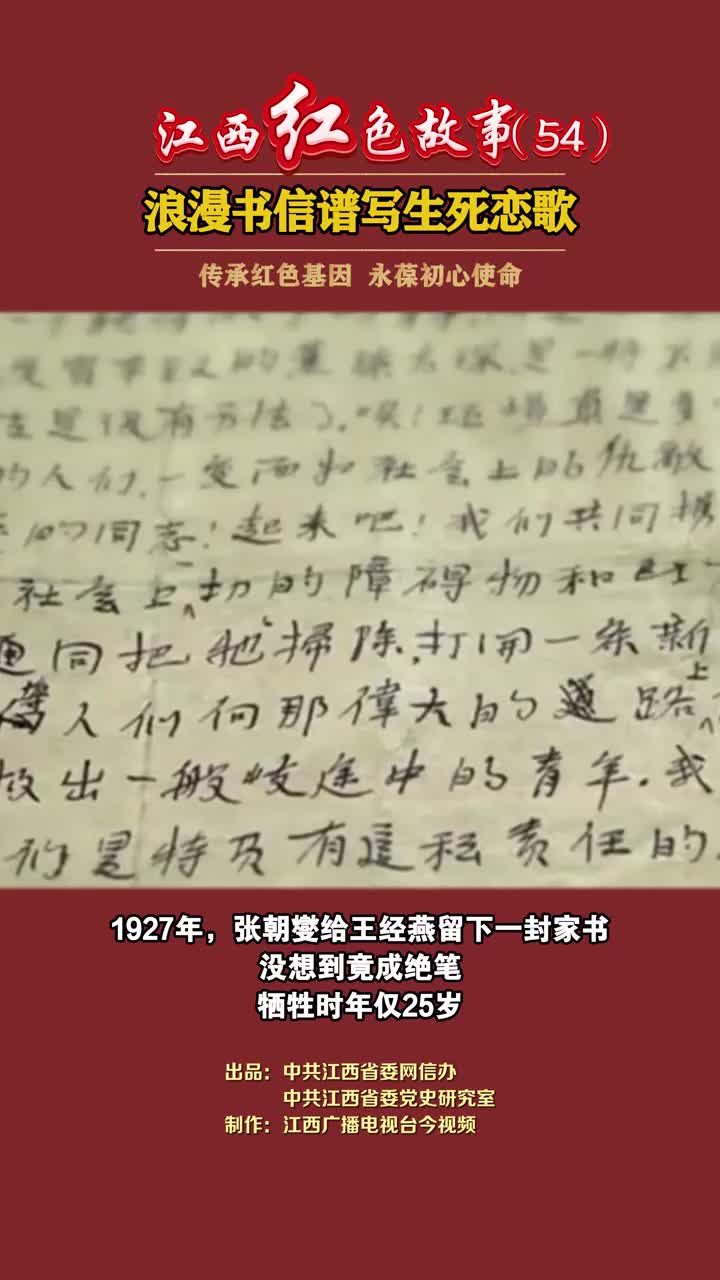 江西红色故事（54）
浪漫书信谱写生死恋歌
传承红色基因 永葆初心使命
是没有方法）。唉！
的人们，一变而如社会上的仇敌
的同志！起来吧！我们共同携
社会上一切的障碍物和
同把他掃除，打開一条新
人们向那偉大的道路上
放出一般歧途中的青年。我
们是特及有這种责任的。
1927年，张朝燮给王经燕留下一封家书
没想到竟成绝笔
牺牲时年仅25岁
出品：中共江西省委网信办
中共江西省委党史研究室
制作：江西广播电视台今视频